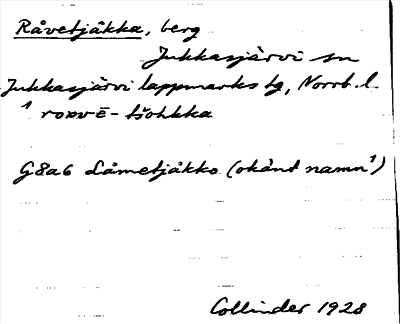 Råvetjåkka, berg
Jukkasjärvi sn
Jukkasjärvi lappmarks tg, Norrb. l.
¹ rorvē-tšohkka
G8a6 Låmetjåkko (okänt namn¹)
Collinder 1928